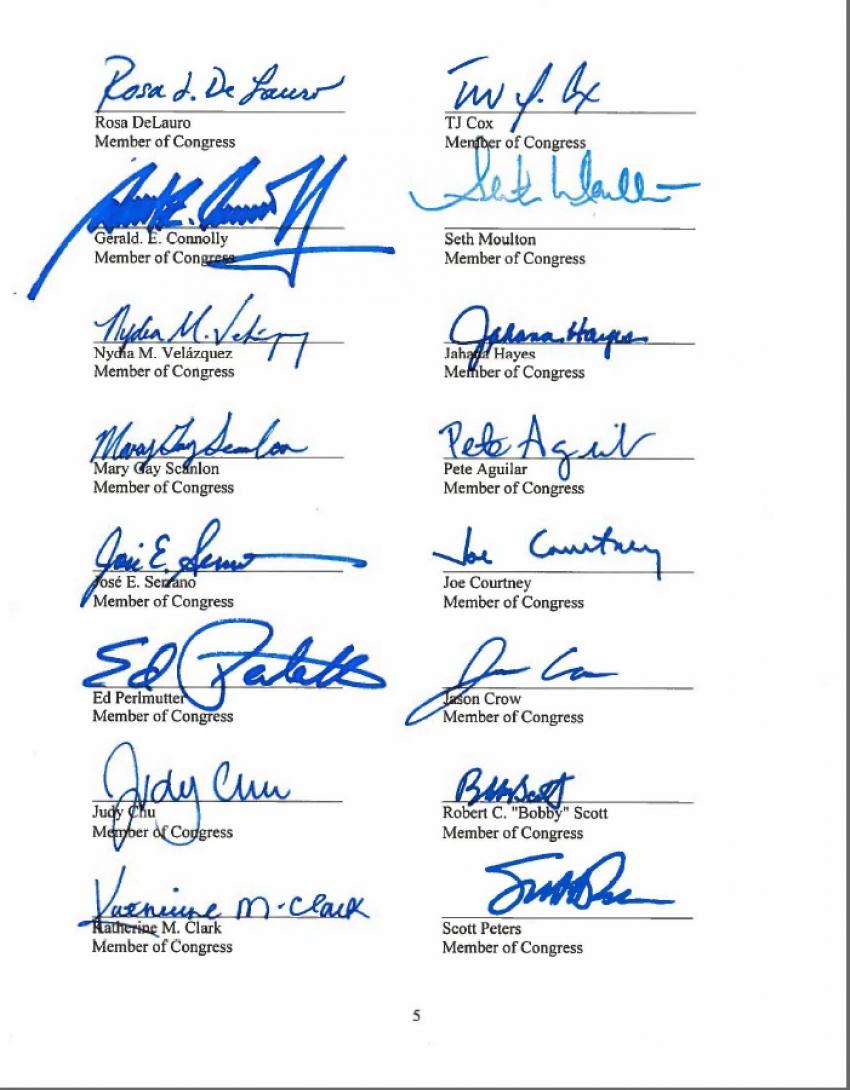 Rosa L. DeLauro
Rosa DeLauro
Member of Congress
TJ Cox
Member of Congress
Gerald. E. Connolly
Member of Congress
Seth Moulton
Seth Moulton
Member of Congress
Nydia M. Velázquez
Nydia M. Velázquez
Member of Congress
Jahana Hayes
Jahana Hayes
Member of Congress
Mary Gay Scanlon
Mary Gay Scanlon
Member of Congress
Pete Aguilar
Pete Aguilar
Member of Congress
José E. Serrano
José E. Serrano
Member of Congress
Joe Courtney
Joe Courtney
Member of Congress
Ed Perlmutter
Ed Perlmutter
Member of Congress
Jason Crow
Member of Congress
Judy Chu
Judy Chu
Member of Congress
Bobby Scott
Robert C. "Bobby" Scott
Member of Congress
Katherine M. Clark
Katherine M. Clark
Member of Congress
Scott Peters
Member of Congress
5